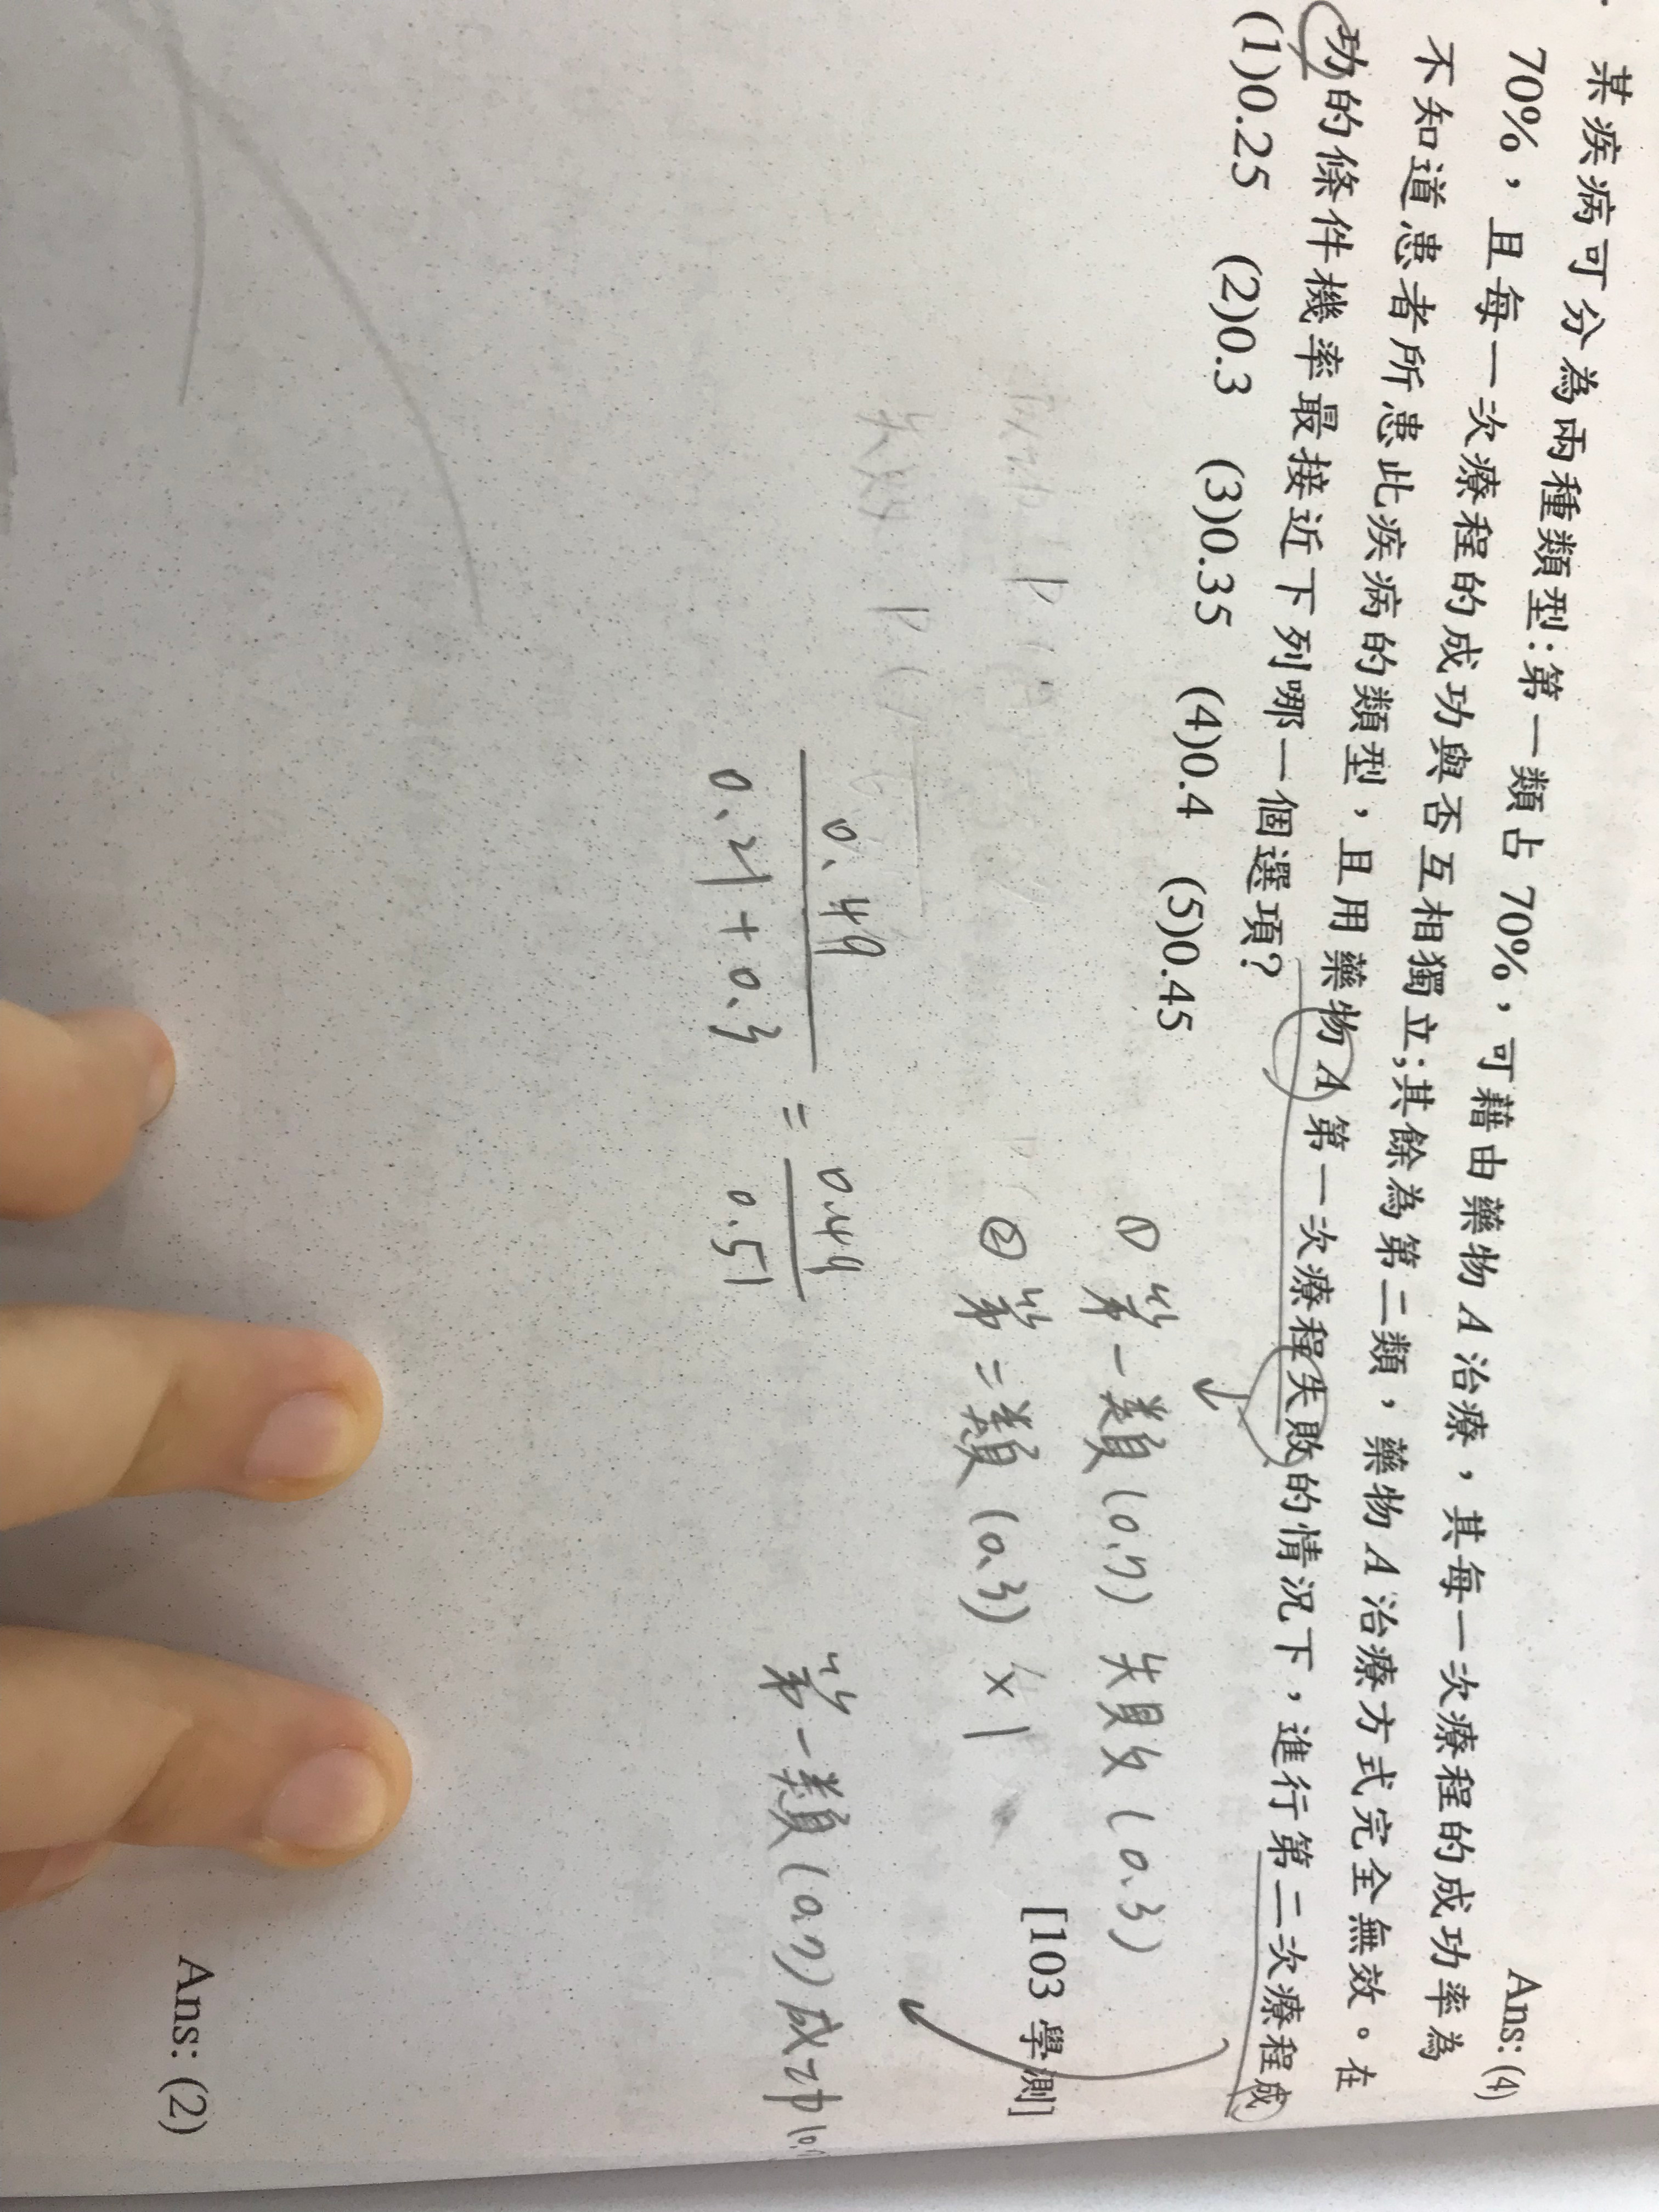 Ans: (4)
某疾病可分為兩種類型:第一類占70%，可藉由藥物A治療，其每一次療程的成功率為
70%，且每一次療程的成功與否互相獨立;其餘為第二類，藥物A治療方式完全無效。在
不知道患者所患此疾病的類型，且用藥物A第一次療程失敗的情況下，進行第二次療程成
功的條件機率最接近下列哪一個選項?
(1)0.25 (2)0.3 (3)0.35 (4)0.4 (5)0.45
[103 學測]
① 第一類 (0.7) 失敗 (0.3)
② 第二類 (0.3) ×1
第一類 (0.7) 成功
0.49
0.21 + 0.3
=
0.49
0.51
失敗 P(
Ans: (2)